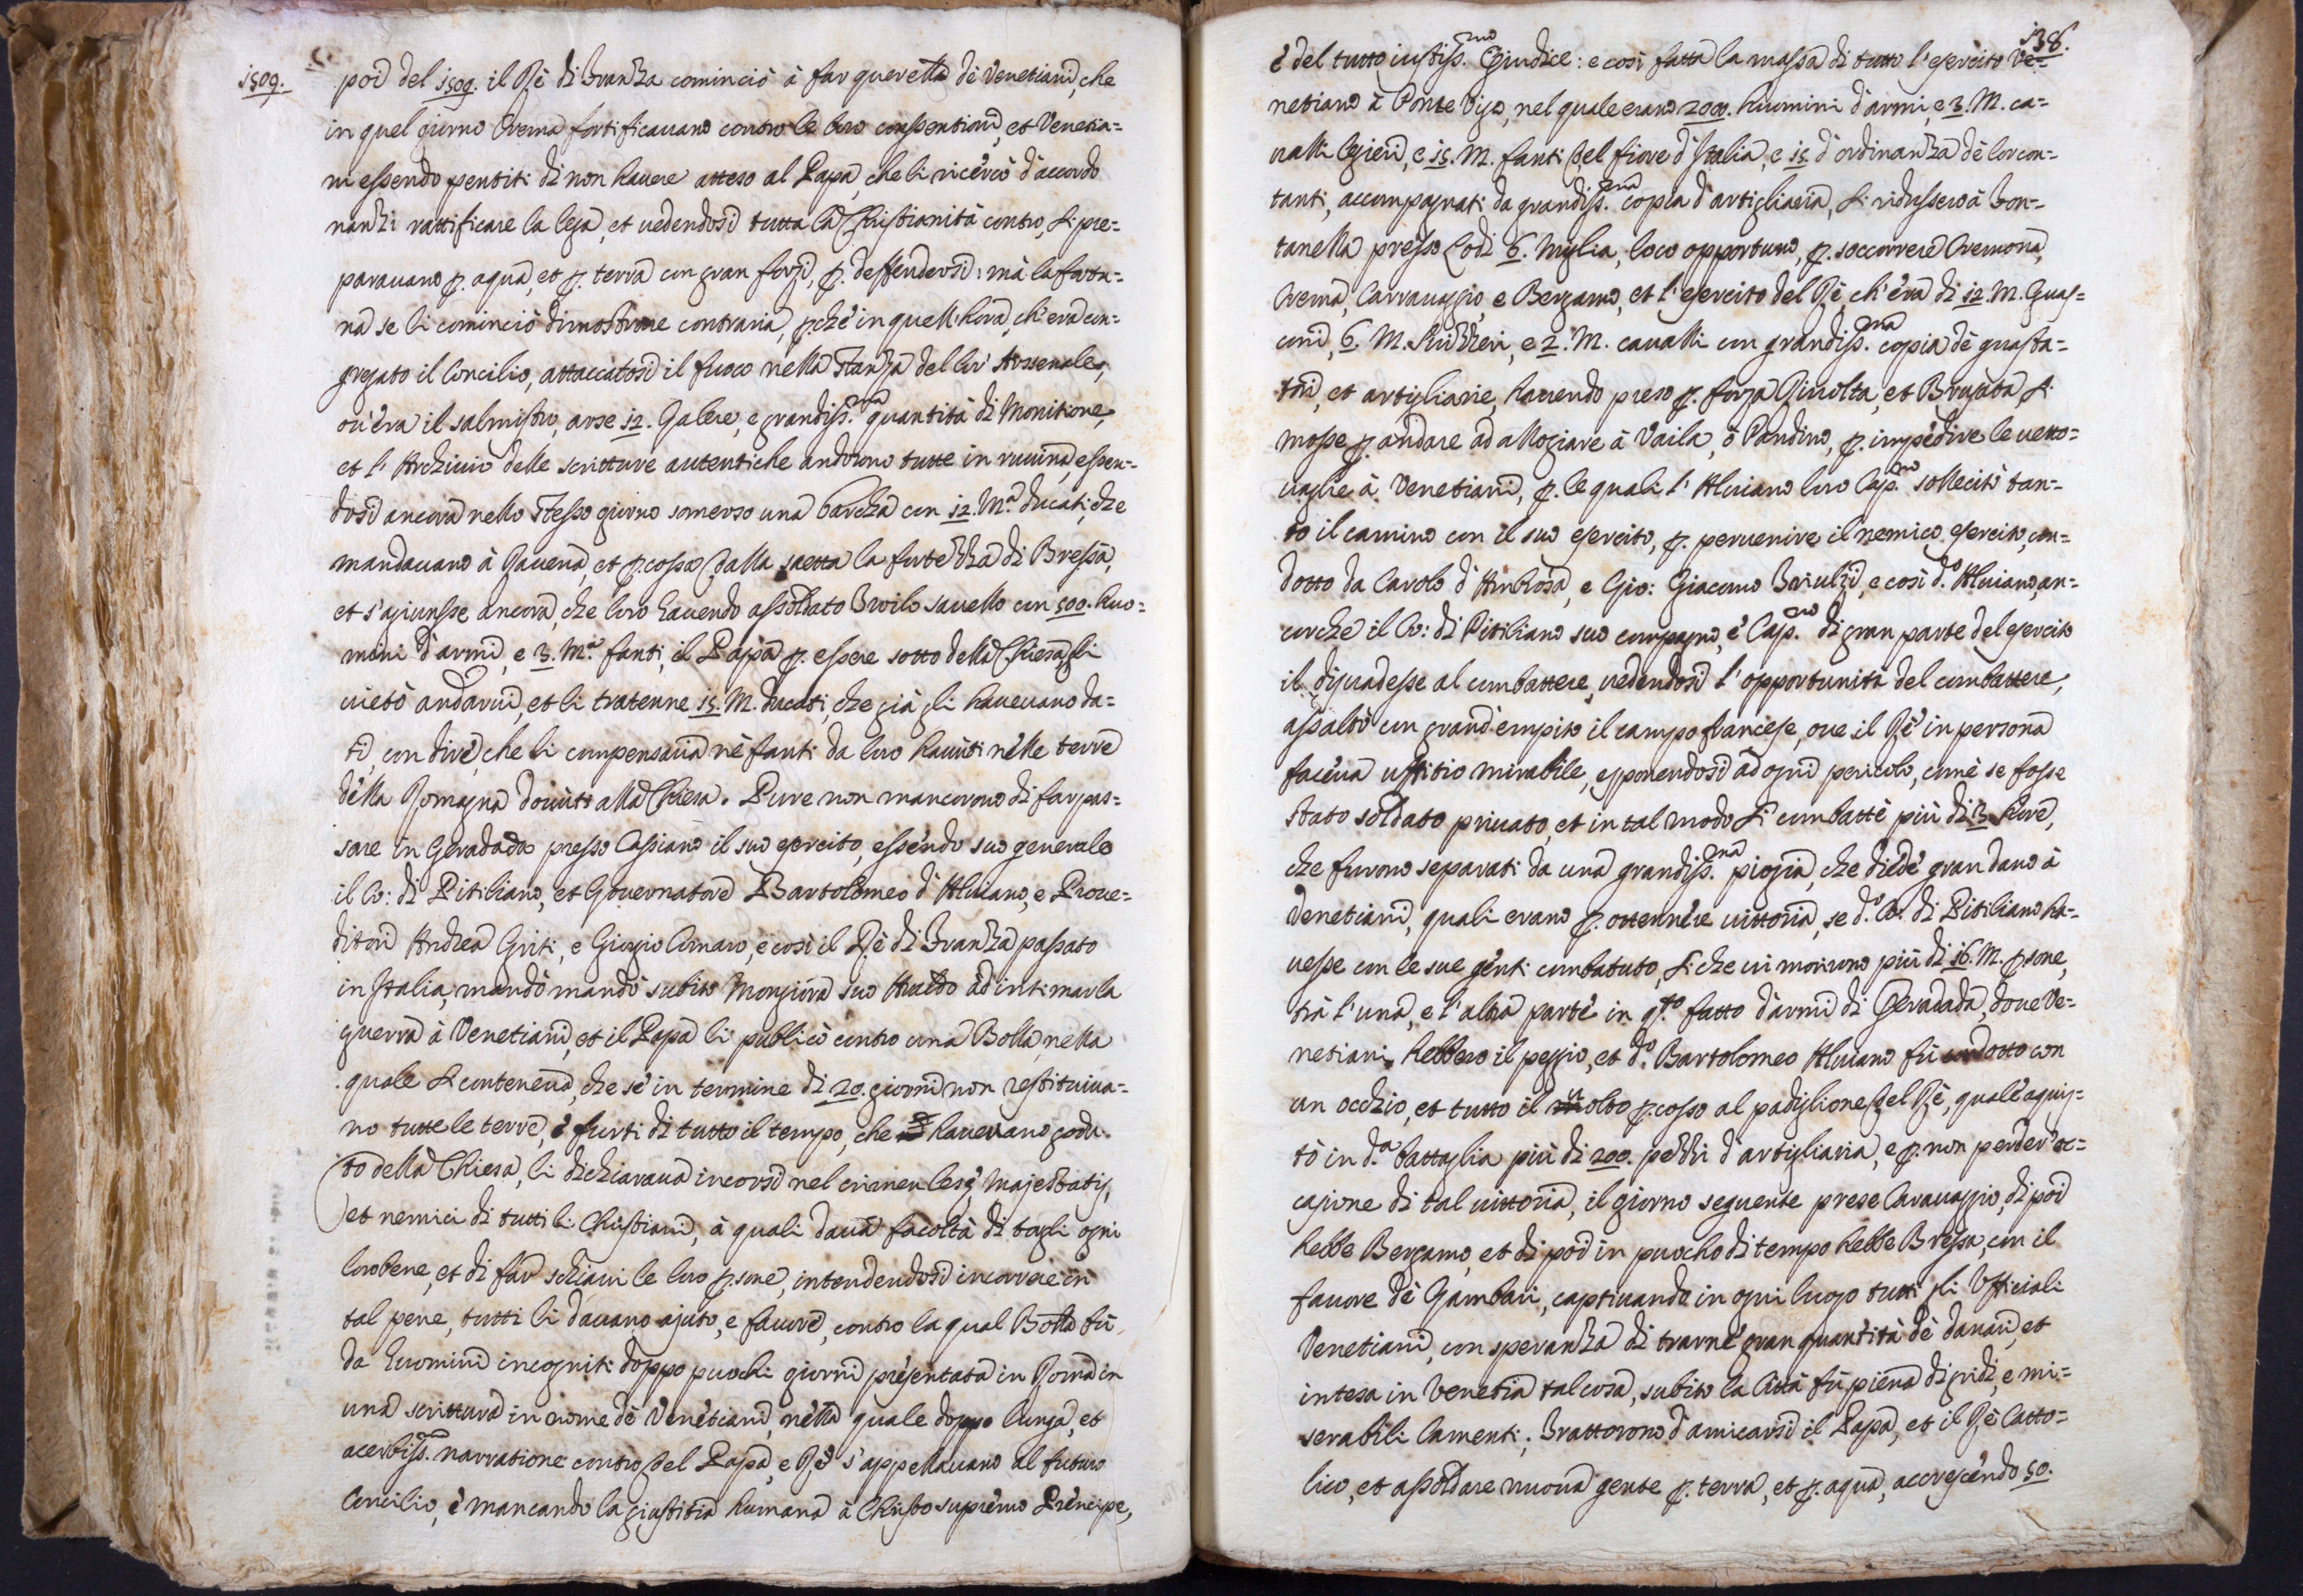 1509.
poi del 1509. il Rè di Franza cominciò à far querella dè Venetiani, che
in quel giorno Crema fortificauano contro le loro conuentioni, et Venetia=
ni essendo pentiti di non hauere atteso al Papa, che li ricercò d'accordo
nanzi rattificare la lega, et uedendosi tutta la Christianità contro, si pre=
parauano p. aqua, et p. terra con gran forzi, p. deffendersi: mà la fortu=
na se li cominciò dimostrare contraria, p.chè in quell'hora, ch'era con=
gregato il Concilio, attaccatosi il fuoco nella stanza del lor' Arssenale,
ou'era il salnistro, arse 12. Galere, e grandiss.ma quantità di Monitione,
et l'Archiuio delle scritture autentiche andorono tutte in ruuina, essen=
dosi ancora nello stesso giorno somerso una barcha con 12. M.a ducati, che
mandauano à Rauena, et p.cossa dalla saetta la fortezza di Bressa,
et s'agiunsse ancora, che loro hauendo assoldato Troilo Sauello con 500. huo=
mini d'armi, e 3. M.a fanti, il Papa p. essere sotto della Chiesa, gli
uietò andarui, et li tratenne 15. M. ducati, che già gli haueuano da=
ti, con dire, che li compensaua nè fanti da loro hauuti nelle terre
della Romagna douuti alla Chiesa. Pure non mancorono di far pas=
sare in Geradada presso Cassiano il suo esercito, essendo suo generale
il Co: di Pitiliano, et Gouernatore Bartolomeo d'Aluiano, e Proue=
ditori Andrea Griti, e Giorgio Cornaro, e così il Rè di Franza passato
in Italia, mandò mandò subito Mongioia suo Araldo ad intimar la
guerra à Venetiani, et il Papa li publicò contro una Bolla, nella
quale si conteneua, che se in termine di 20. giorni non restituiua=
no tutte le terre, è frutti di tutto il tempo, che haueuano godu=
to della Chiesa, li dichiaraua incorsi nel crimen lesę Majestatis,
et nemici di tutti li Christiani, à quali daua facoltà di togli ogni
loro bene, et di far schiaui le loro p.sone, intendendosi incorrere in
tal pene, tutti li dauano ajuto, e fauore, contro la qual Bolla fù
da huomini incogniti doppo puochi giorni presentata in Roma in
una scrittura in nome dè Venetiani, nella quale doppo lunga, et
acerbiss.ma narratione contro del Papa, e Rè s'appellauano al futuro
Concilio, è mancando la giustitia humana à Christo supremo Prencipe,
138.
è del tutto iustiss.mo Giudice: e così fatta la massa di tutto l'esercito Ve=
netiano à Ponte Vigo, nel quale erano 2000. huomini d'armi, e 3. M. ca=
ualli legieri, e 15. M. fanti del fiore d'Italia, e 15 d'ordinanza dè lor con=
tanti, accompagnati da grandiss.ma copia d'artigliaria, si ridussero à Fon=
tanella presso Lodi 6. Miglia, loco opportuno, p. soccorrere Cremona,
Crema, Carrauaggio, e Bergamo, et l'esercito del Rè, ch'era di 12. M. Guas=
coni, 6. M. Suizzeri, e 2. M. caualli con grandiss.ma copia dè guasta=
tori, et artigliarie, hauendo preso p. forza Riuolta, et Brugata, si
mosse p. andare ad allogiare à Vaila, ò Pandino, p. impedire le uetto=
uaglie à Venetiani, p. le quali l'Aluiano loro Cap.no sollecitò tan=
to il camino con il suo esercito, p. peruenire il nemico esercito, con=
dotto da Carolo d'Ambosa, e Gio: Giacomo Triulzi, e così d.o Aluiano, an=
corche il Co: di Pitiliano suo compagno, è Cap.no di gran parte del esercito
il disuadesse al combattere, uedendosi l'opportunità del combattere,
assaltò con grand'empito il campo francese, oue il Rè in persona
faceua uffitio mirabile, esponendosi ad ogni pericolo, come se fosse
stato soldato priuato, et in tal modo si combattè più di 3 hore,
che furono separati da una grandiss.ma pioggia, che diede gran dano à
Venetiani, quali erano p. ottennere uittoria, se d.o Co. di Pitiliano ha=
uesse con le sue genti combatuto, si che ui morirono più di 16. M. p.sone,
trà l'una, e l'altra parte in q.sto fatto d'armi di Geradada, doue Ve=
netiani hebbero il peggio, et d.o Bartolomeo Aluiano fù condotto con
un occhio, et tutto il uolto p.cosso al padiglione del Rè, quale aquis=
tò in d.a battaglia più di 200. pezzi d'artigliaria, e p. non perder' oc=
casione di tal uittoria, il giorno seguente prese Carauaggio, di poi
hebbe Bergamo, et di poi in puocho di tempo hebbe Bressa, con il
fauore dè Gambari, captiuando in ogni luogo tutti gli Vfficiali
Venetiani, con speranza di trarne gran quantità dè danari, et
intesa in Venetia tal cosa, subito la Città fù piena di gridi, e mi=
serabili lamenti; Trattorono d'amicarsi il Papa, et il Rè Catto=
lico, et assoldare nuoua gente p. terra, et p. aqua, accrescendo 50.